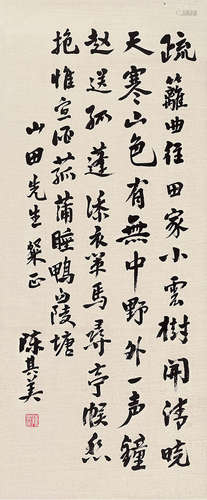 疏籬曲径田家小雲樹開清曉
天寒山色有無中野外一声鐘
起送孤蓬添衣策馬尋亭堠愁
抱惟宣酒菰蒲睡鴨占陂塘
山田先生粲正
陳其美